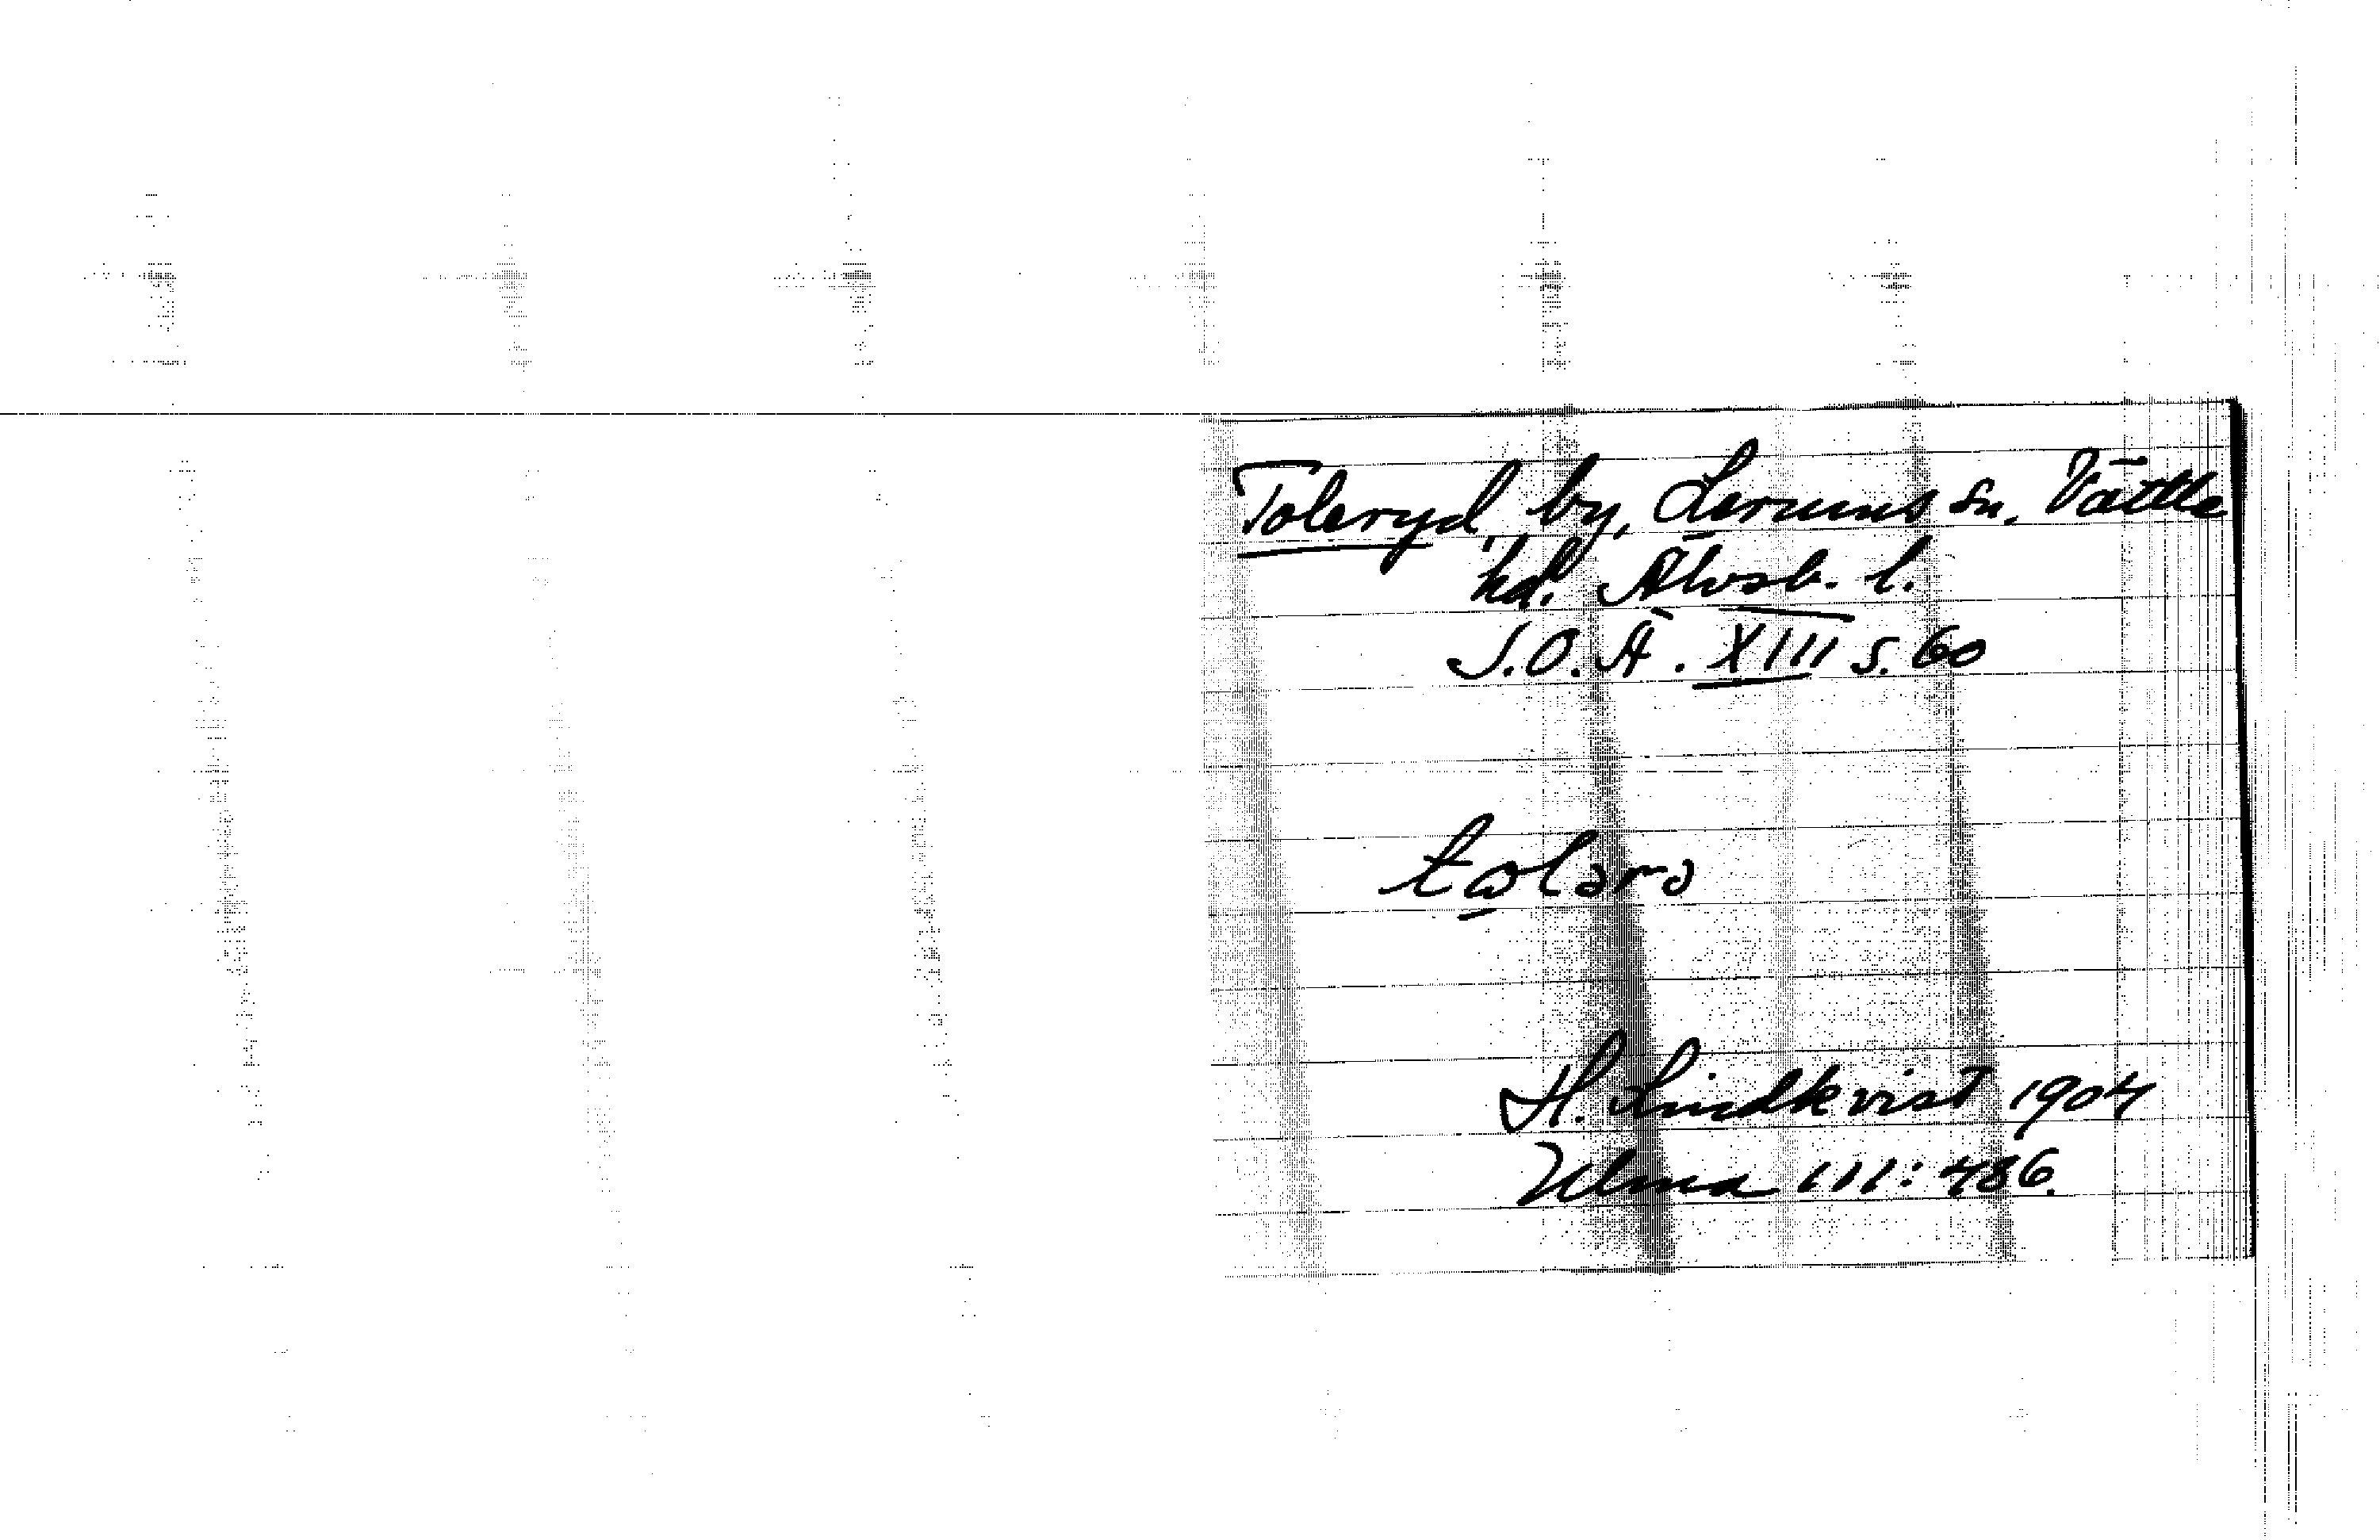 Toleryd by, Lerums sn, Vättle
hd. Älvsb. l.
S.O.Ä. XIII s. 60
tɷlərə
H. Lindkvist 1904
Ulma 111:486.